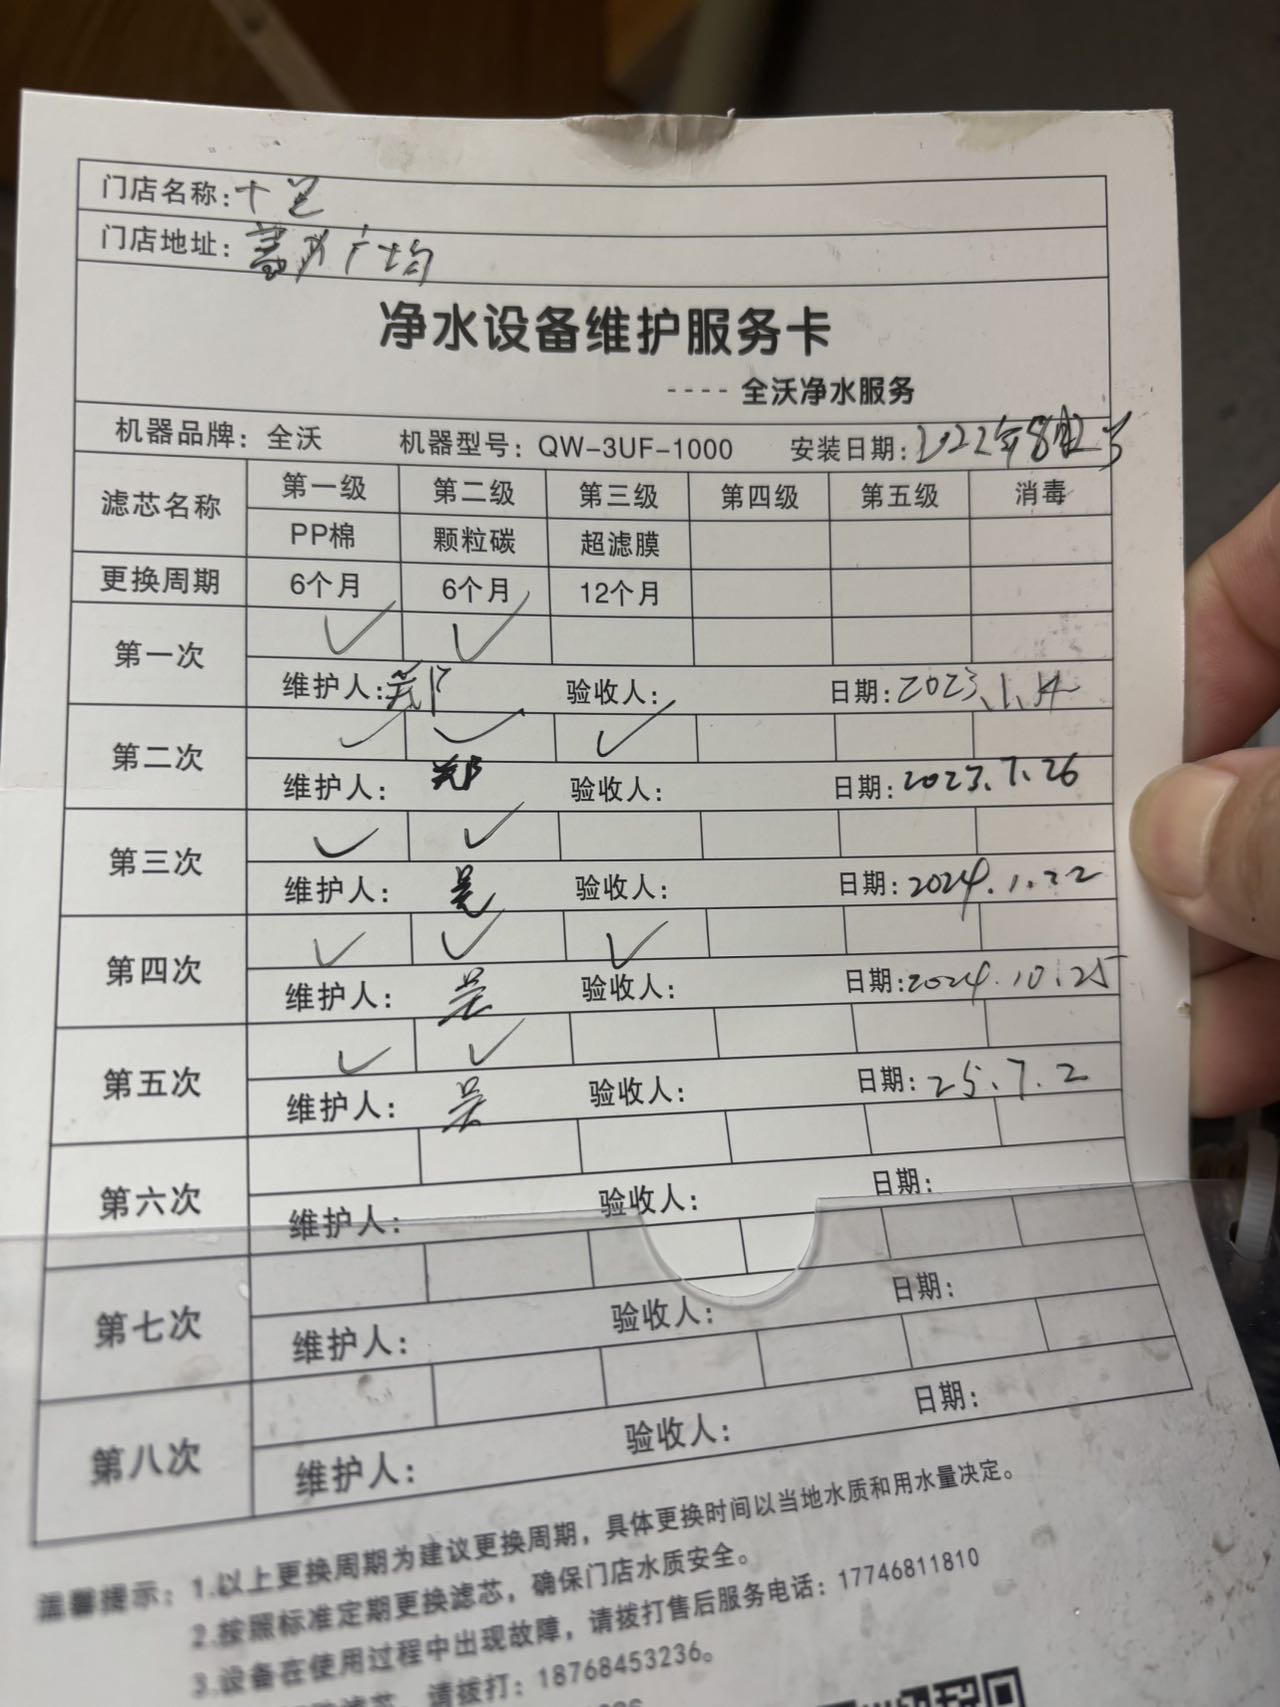 门店名称：
门店地址：
净水设备维护服务卡
---- 全沃净水服务
机器品牌：全沃 机器型号：QW-3UF-1000 安装日期：2022年8月
滤芯名称 第一级 第二级 第三级 第四级 第五级 消毒
PP棉 颗粒碳 超滤膜
更换周期 6个月 6个月 12个月
第一次 ✓ ✓
维护人：郑 验收人： 日期：2023.1.14
第二次 ✓ ✓ ✓
维护人：郑 验收人： 日期：2023.7.26
第三次 ✓ ✓
维护人：吴 验收人： 日期：2024.1.22
第四次 ✓ ✓ ✓
维护人：吴 验收人： 日期：2024.10.25
第五次 ✓ ✓
维护人：吴 验收人： 日期：25.7.2
第六次
维护人： 验收人： 日期：
第七次
维护人： 验收人： 日期：
第八次
维护人： 验收人： 日期：
温馨提示：1.以上更换周期为建议更换周期，具体更换时间以当地水质和用水量决定。
2.按照标准定期更换滤芯，确保门店水质安全。
3.设备在使用过程中出现故障，请拨打售后服务电话：17746811810
请拨打：18768453236。